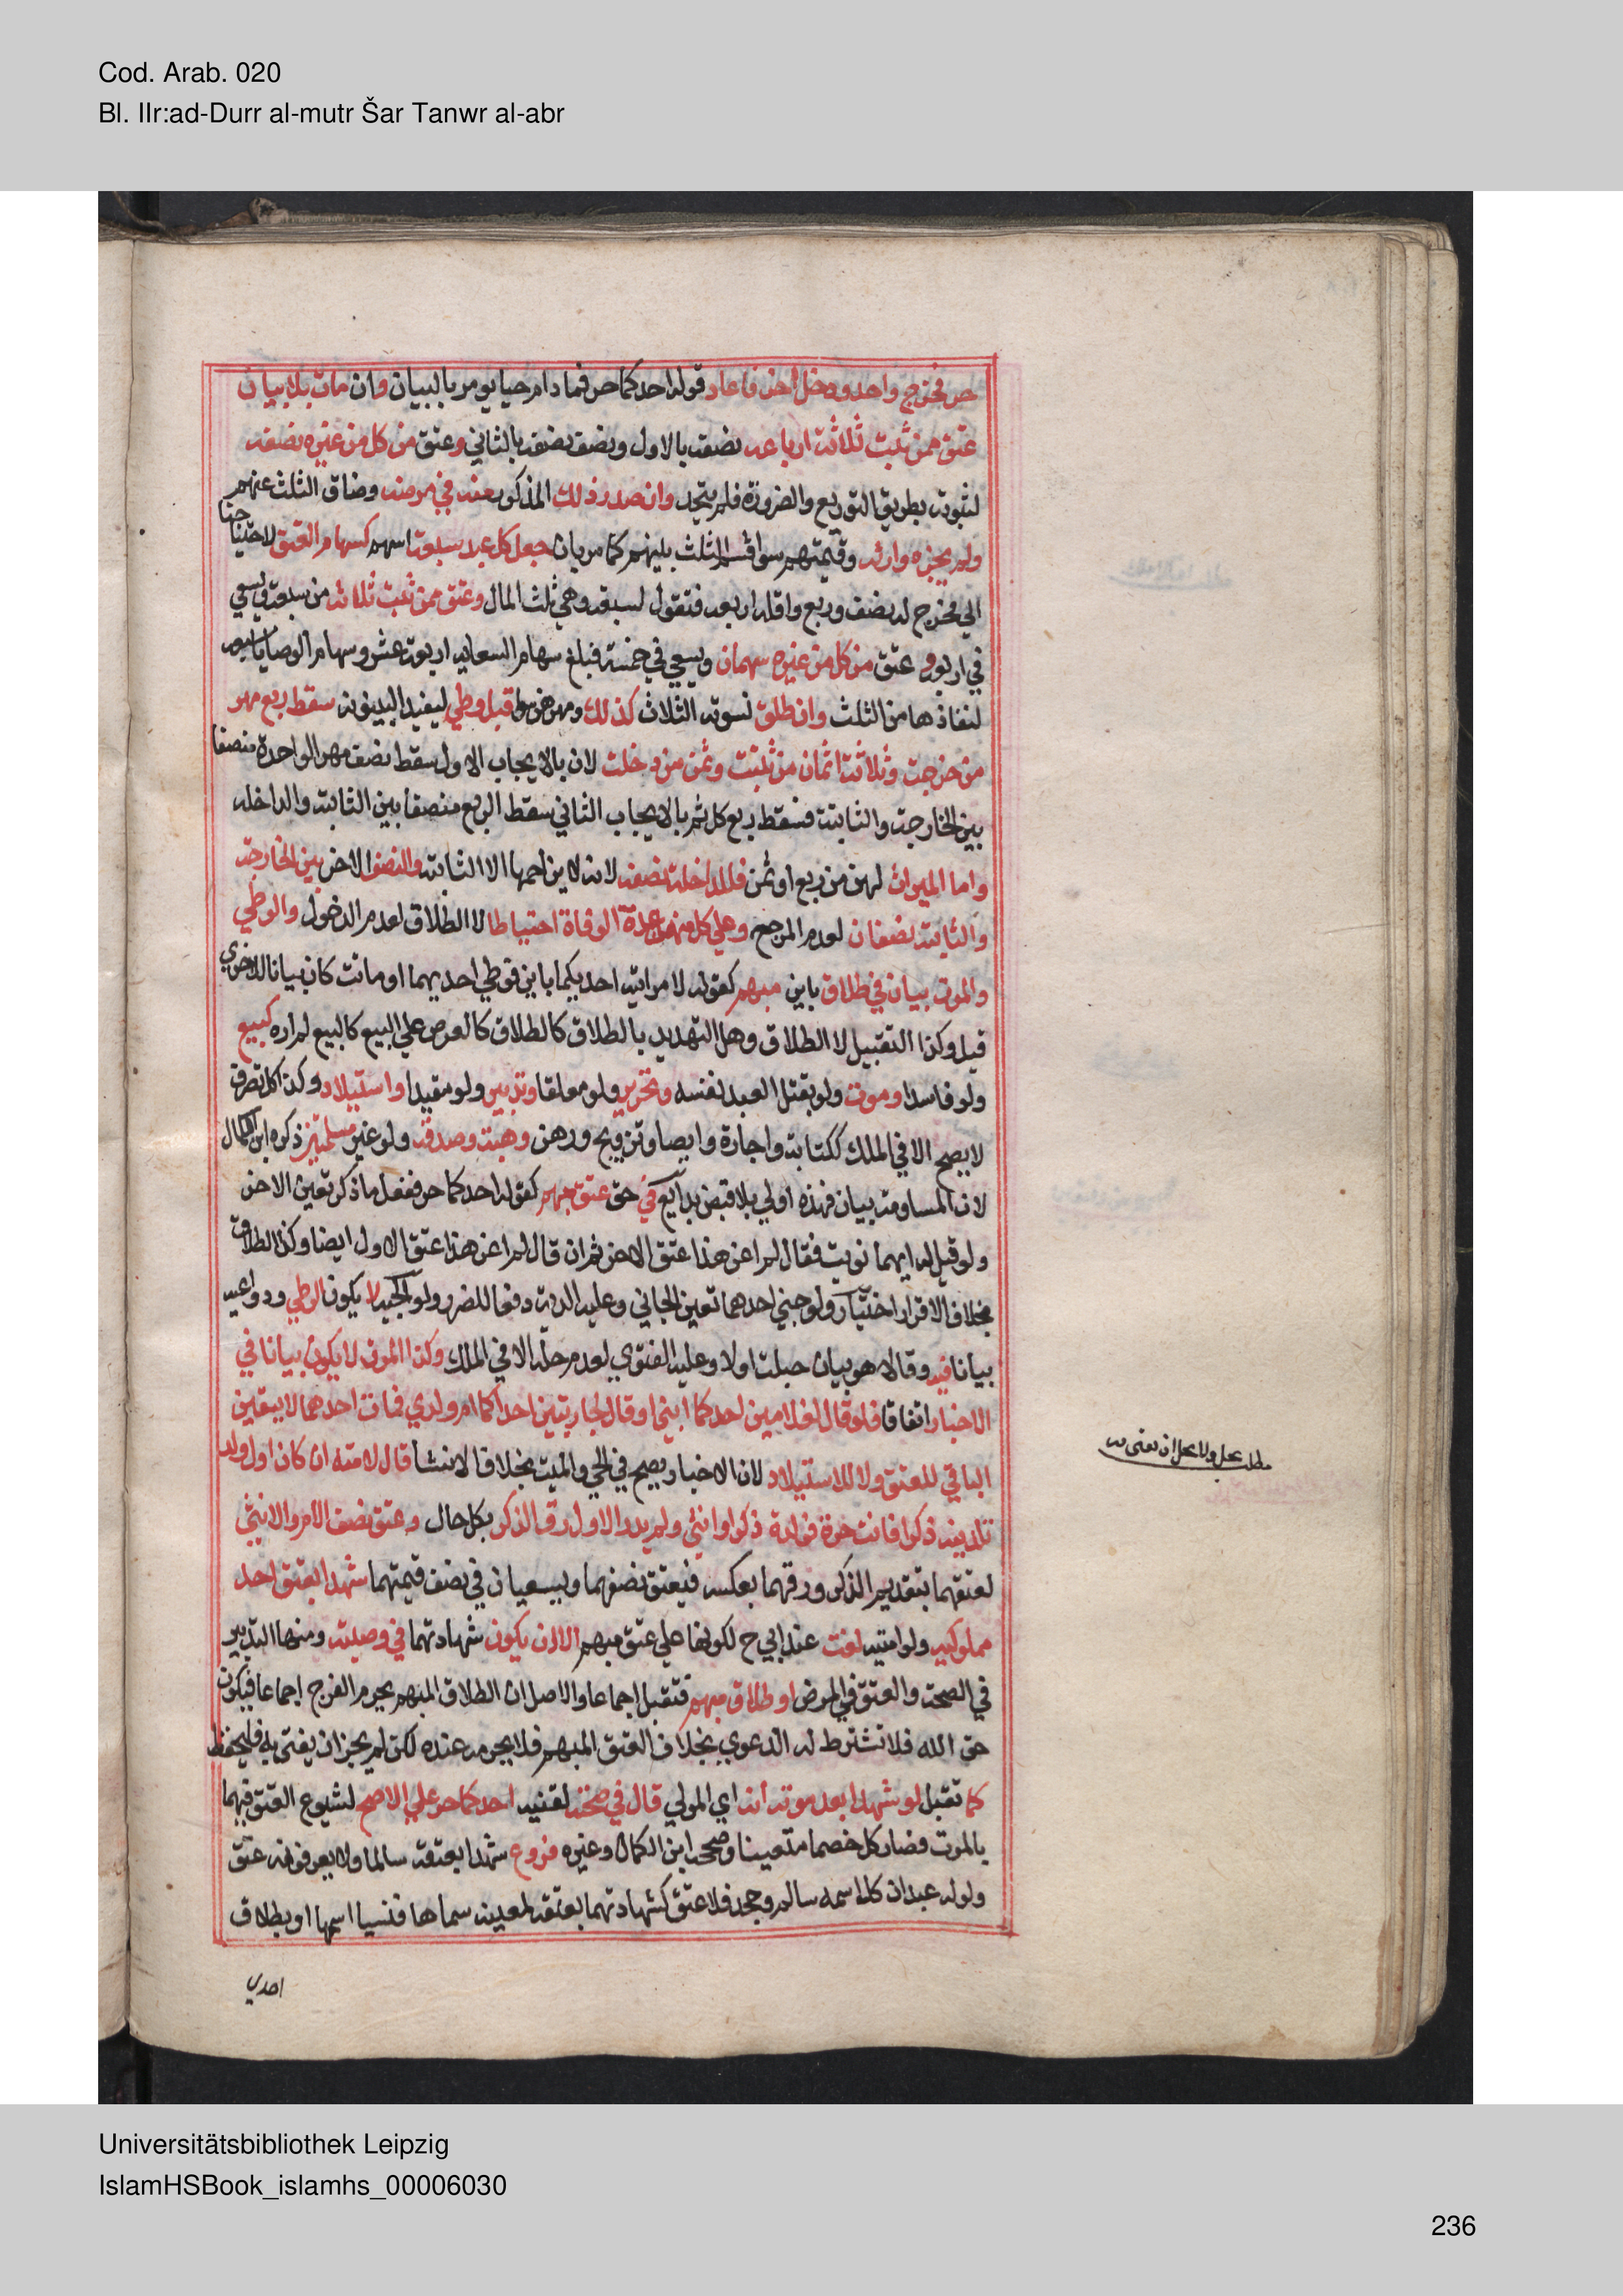 Cod. Arab. 020
Bl. IIr:ad-Durr al-mutr Šar Tanwr al-abr
حر فخرج واحد ودخل اخر فاعاد قوله احدكما حر فما دام حيا يومر بالبيان وان مات بلا بيان
عتق ممن ثبت ثلاثة ارباعه نصفه بالاول ونصف نصفه بالثاني وعتق من كل من غيره نصفه
لثبوته بطريق التوزيع والضرورة فلم يتعد وان صدر ذلك المذكور منه في مرضه وضاق الثلث عنهم
ولم يجزه وارثه وقيمتهم سوا قسم الثلث بينهم كما مر بان جعل كل عبد سبعة اسهم كسهام العتق لاحتياجنا
الي مخرج له نصف وربع واقله اربعة فتعول لسبعة وهي ثلث المال وعتق ممن ثبت ثلاثة من سبعة ويسعي
في اربعة و عتق من كل من غيره سهمان ويسعي في خمسة فبلغ سهام السعاية اربعة عشر وسهام الوصايا سبعة
لنفاذها من الثلث وان طلق نسوته الثلاث كذلك ومهرهن سوا قبل وطي ليفيد البينونة سقط ربع مهر
من خرجت وثلاثة اثمان من ثبتت وثمن من دخلت لان بالايجاب الاول سقط نصف مهر الواحدة منصفا
بين الخارجة والثابتة فسقط ربع كل ثم بالايجاب الثاني سقط الربع منصفا بين الثابتة والداخلة
واما الميراث لهن من ربع او ثمن فللداخلة نصفه لانه لا يزاحمها الا الثابتة والنصف الاخر بين الخارجة
والثابتة نصفان لعدم المرجح وعلي كل منهن عدة الوفاة احتياطا لا الطلاق لعدم الدخول والوطي
والموت بيان في طلاق باين مبهم كقوله لامراتيه احديكما باين فوطي احديهما او ماتت كان بيانا للاخري
قيل وكذا التقبيل لا الطلاق وهل التهديد بالطلاق كالطلاق كالعرض علي البيع كالبيع لم اره كبيع
ولو فاسدا وموت ولو بقتل العبد نفسه وتحرير ولو معلقا وتدبير ولو مقيدا واستيلاد وكذا كل تصرف
لا يصح الا في الملك ككتابة واجارة وايصا وتزويج ورهن وهبة وصدقة ولو غير مسلمتين ذكره ابن الكمال
لان المساومة بيان فهذه اولي بلا قبض بدايع في حق عتق مبهم كقوله احدكما حر ففعل ما ذكر تعين الاخر
ولو قيل له ايهما نويت فقال لم اعن هذا عتق الاخر ثم ان قال لم اعن هذا عتق الاول ايضا وكذا الطلاق
بخلاف الاقرار اختيار ولو جني احدهما تعين الجاني وعليه الدية دفعا للضرر لا يكون الوطي ودواعيه
بيانا فيه وقالا هو بيان حبلت اولا وعليه الفتوي لعدم حله الا في الملك وكذا الموت لا يكون بيانا في
الاخبار اتفاقا فلو قال لغلامين احدكما ابني او قال لجاريتين احداكما ام ولدي فمات احدهما لا يتعين
الباقي للعتق ولا للاستيلاد لان الاخبار يصح في الحي والميت بخلاف الانشا قال لامته ان كان اول ولد
تلدينه ذكرا فانت حرة فولدت ذكرا وانثي ولم يدر الاول رق الذكر بكل حال وعتق نصف الام والانثي
لعتقهما بتقديم الذكر ورقهما بعكسه فيعتق نصفهما ويسعيان في نصف قيمتهما شهدا بعتق احد
مملوكيه ولو امتيه لغت عند ابي ح لكونها علي عتق مبهم الا ان يكون شهادتهما في وصية ومنها التدبير
في الصحة والعتق في المرض او طلاق مبهم فتقبل اجماعا والاصل ان الطلاق المبهم يحرم الفرج اجماعا فيكون
حق الله فلا تشترط له الدعوي بخلاف العتق المبهم فلا يحرمه عنده لكن لم يجز ان يفتي به فليحفظ
كما تقبل لو شهدا بعد موته انه اي المولي قال في صحته لقنيه احدكما حر علي الاصح لشيوع العتق فيهما
بالموت فصار كل خصما متعينا وصححه ابن الكمال وغيره فروع شهدا بعتقه سالما ولا يعرفونه عتق
ولو له عبدان كل اسمه سالم وجحد فلا عتق كشهادتهما بعتقه لمعينة سماها فنسيا اسمها او بطلاق
احدي
Universitätsbibliothek Leipzig
IslamHSBook_islamhs_00006030
236